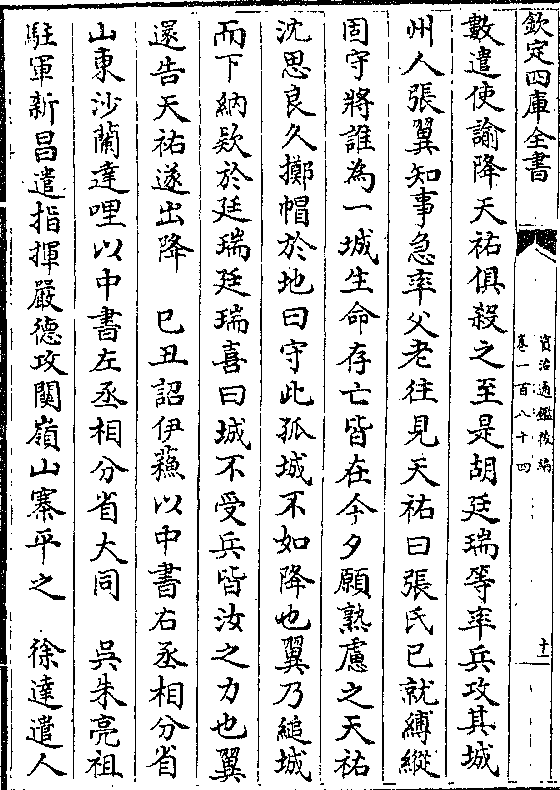 欽定四庫全書
資治通鑑後編
卷一百八十四
十一
數遣使諭降天祐俱殺之至是胡廷瑞等率兵攻其城
州人張翼知事急率父老往見天祐曰張氏已就縛縱
固守將誰為一城生命存亡皆在今夕願熟慮之天祐
沈思良久擲帽於地曰守此孤城不如降也翼乃縋城
而下納欵於廷瑞廷瑞喜曰城不受兵皆汝之力也翼
還告天祐遂出降　己丑詔伊蘓以中書右丞相分省
山東沙蘭達哩以中書左丞相分省大同　吳朱亮祖
駐軍新昌遣指揮嚴德攻關嶺山寨平之　徐達遣人